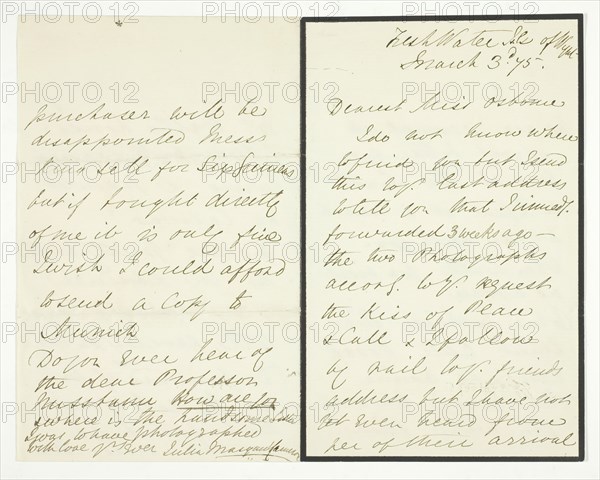 Fresh Water Isle of Wight
March 3d 75.
Dearest Miss Osborne
I do not know where
to find you but I send
this to yr. last address
to tell you that I immedy.
forwarded 3 weeks ago —
the two Photographs
accordg. to yr. request
the Kiss of Peace
& Call & I follow
by rail to yr. friends
address but I have not
yet even heard from
her of their arrival
purchaser will be
disappointed Messrs
sell for Six Guineas
but if bought directly
of me it is only five
I wish I could afford
to send a Copy to
Munich
Do you ever hear of
the dear Professor
How are you
& where is the handsome
I was to have photographed
with love yr. ever Julia Margaret Cameron
PHOTO 12